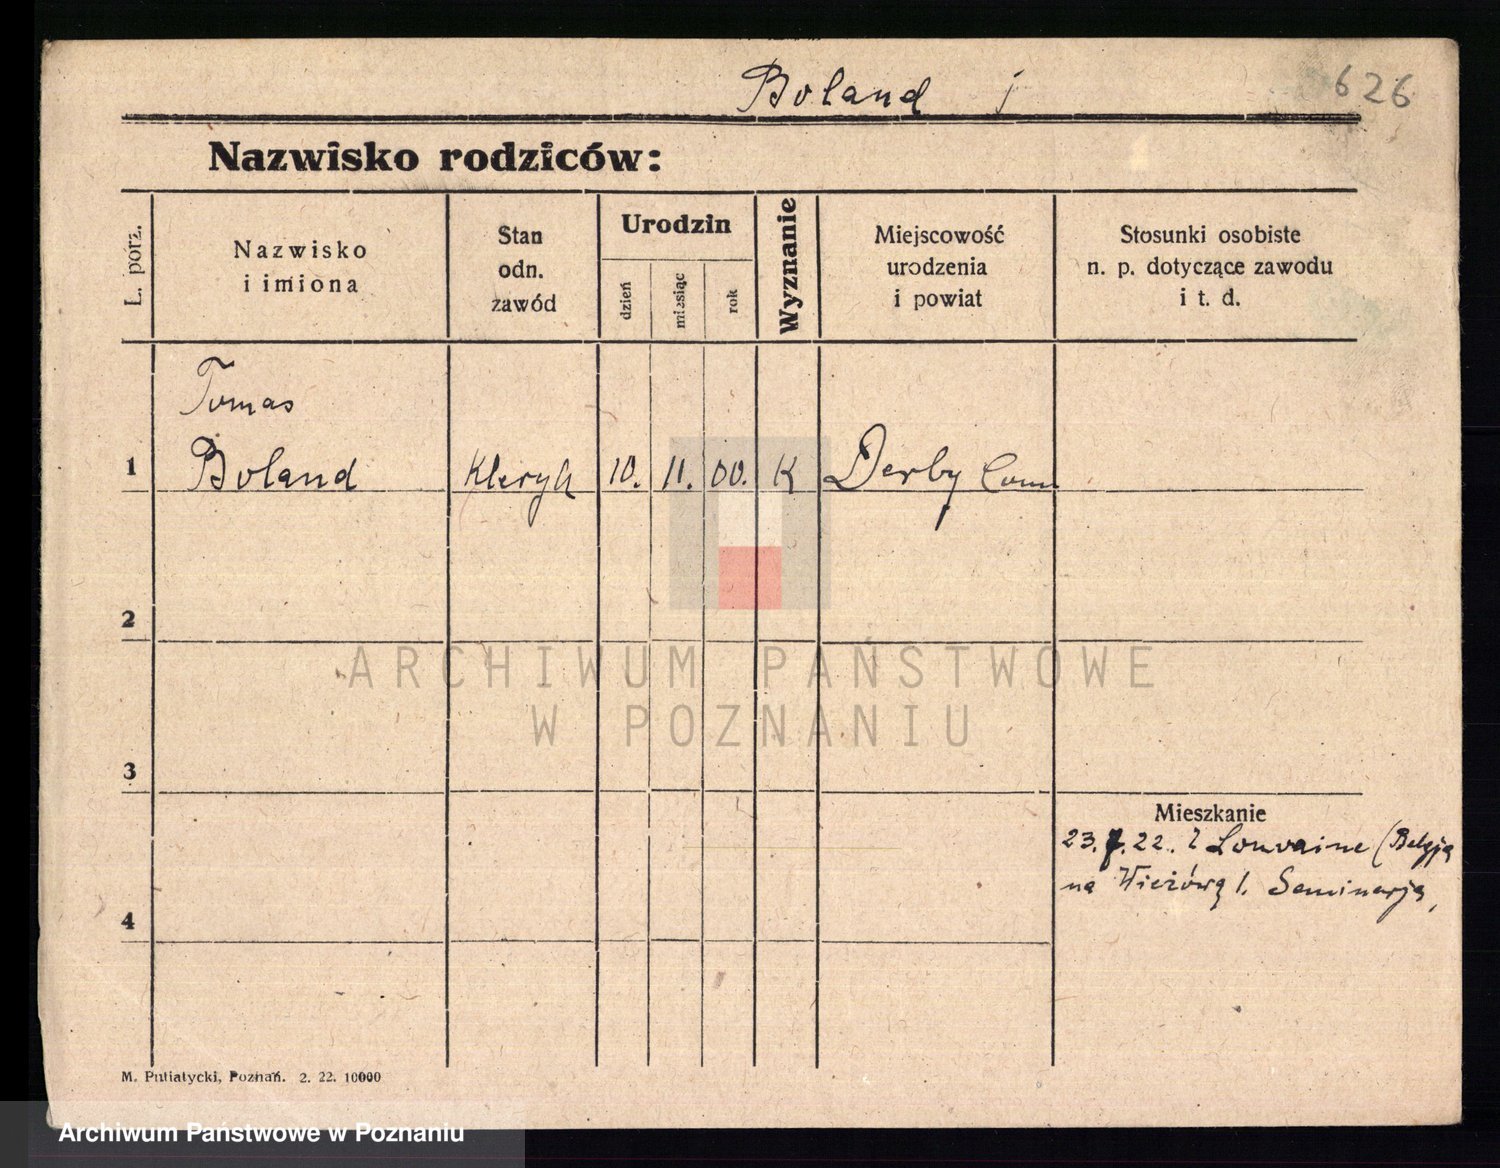 Boland j
626
Nazwisko rodziców:
L. porz.
Nazwisko
i imiona
Stan
odn.
zawód
Urodzin
dzień
miesiąc
rok
Wyznanie
Miejscowość
urodzenia
i powiat
Stosunki osobiste
n. p. dotyczące zawodu
i t. d.
Tomas
1 Boland Kleryk 10. 11. 00. K Derby Conn
2
ARCHIWUM PAŃSTWOWE
W POZNANIU
3
Mieszkanie
23.7.22. Z Louvaine (Belgją
na Wieżową 1. Seminarja,
4
M. Putiatycki, Poznań. 2. 22. 10000
Archiwum Państwowe w Poznaniu